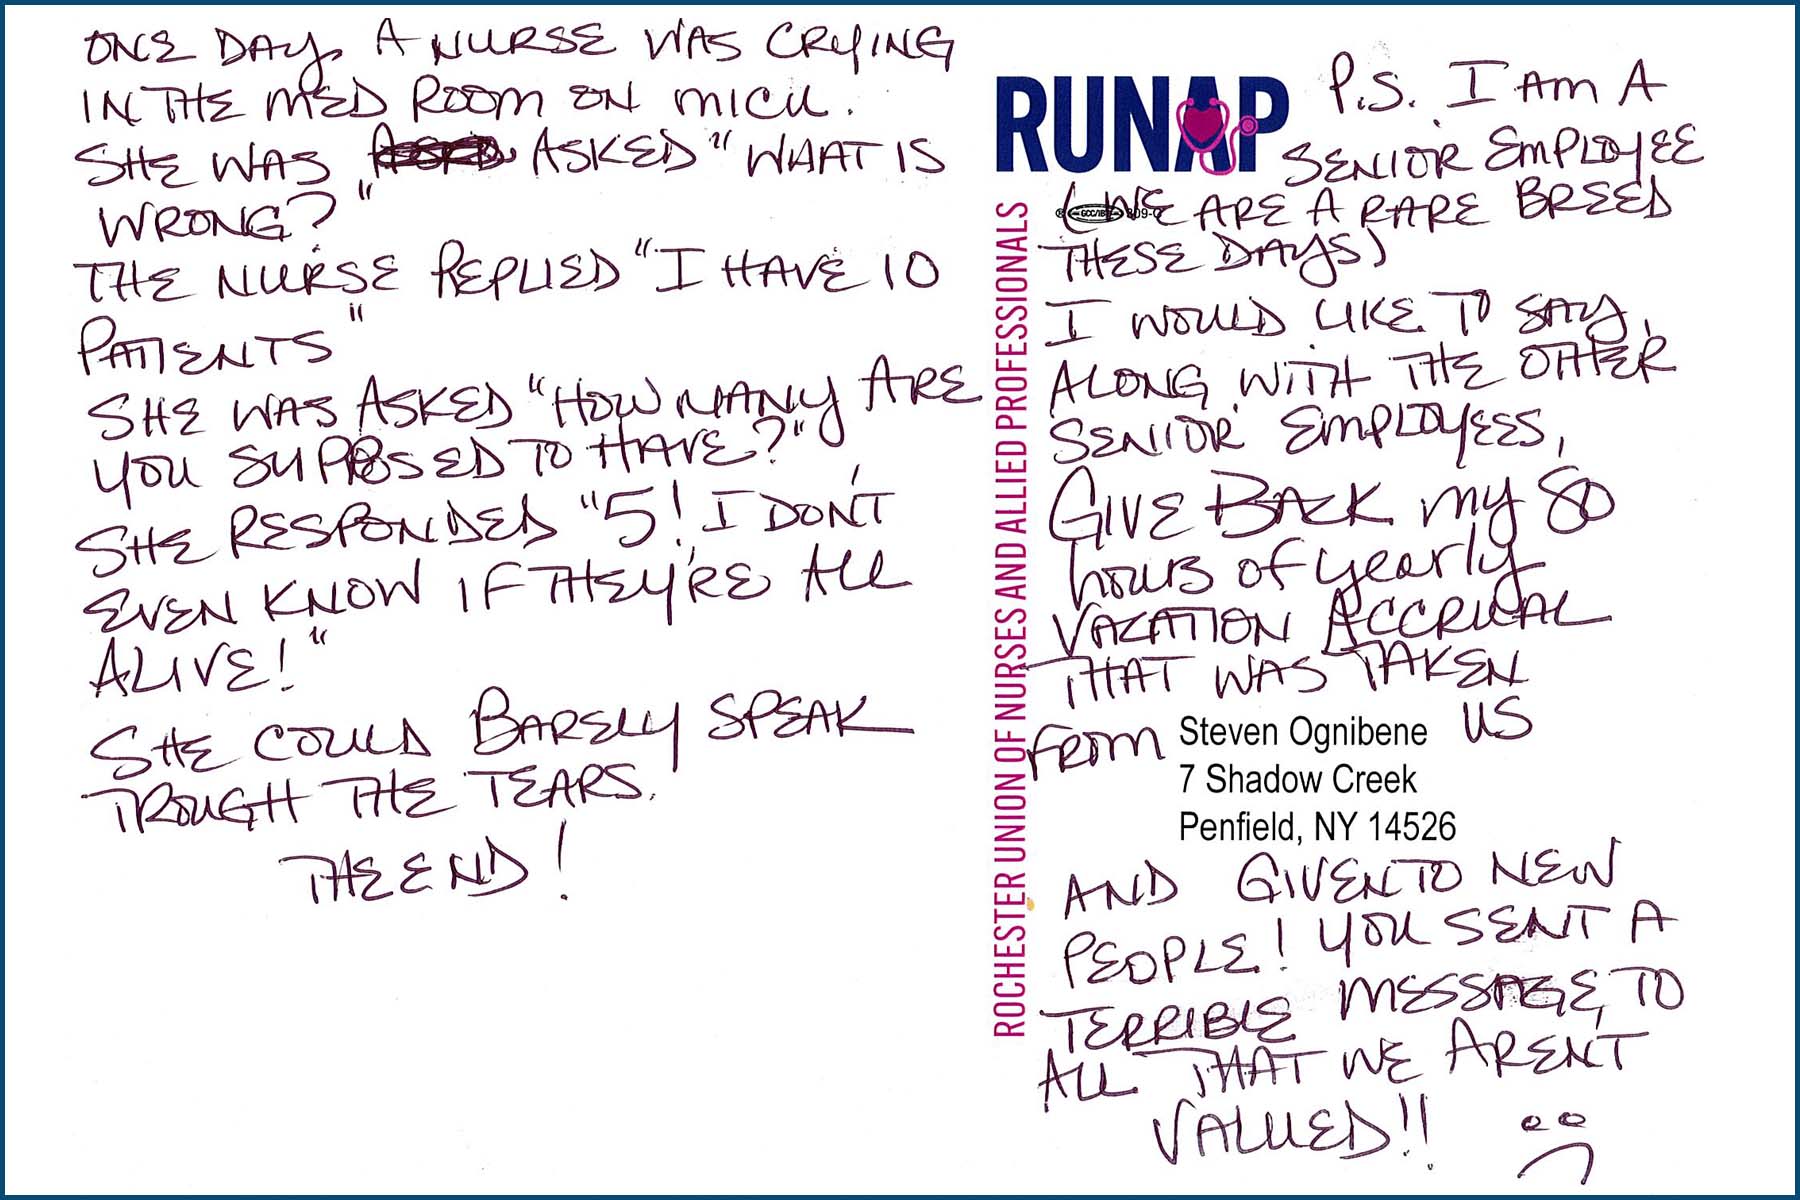 ONE DAY, A NURSE WAS CRYING
IN THE MED ROOM ON MICU.
SHE WAS ASKED "WHAT IS
WRONG?"
THE NURSE REPLIED "I HAVE 10
PATIENTS"
SHE WAS ASKED "HOW MANY ARE
YOU SUPPOSED TO HAVE?"
SHE RESPONDED "5! I DON'T
EVEN KNOW IF THEY'RE ALL
ALIVE!"
SHE COULD BARELY SPEAK
TROUGH THE TEARS.
THE END!
RUNAP
ROCHESTER UNION OF NURSES AND ALLIED PROFESSIONALS
P.S. I AM A
SENIOR EMPLOYEE
(WE ARE A RARE BREED
THESE DAYS)
I WOULD LIKE TO SAY,
ALONG WITH THE OTHER
SENIOR EMPLOYEES,
GIVE BACK MY 80
hours of yearly
VACATION ACCRUAL
THAT WAS TAKEN
FROM US
Steven Ognibene
7 Shadow Creek
Penfield, NY 14526
AND GIVEN TO NEW
PEOPLE! YOU SENT A
TERRIBLE MESSAGE, TO
ALL THAT WE ARENT
VALUED!!